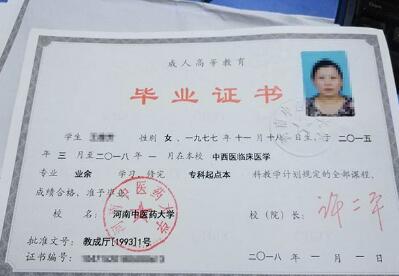 成人高等教育
毕业证书
学生 性别 女，一九七七年十一月十八日生，于二〇一五
年三月至二〇一八年一月在本校 中西医临床医学
专业 业余 学习，修完 专科起点本 科教学计划规定的全部课程，
成绩合格，准予毕业。
校 名： 河南中医药大学 校（院）长： 许二平
批准文号： 教成厅[1993]1号
证书编号： 二〇一八年一月一日